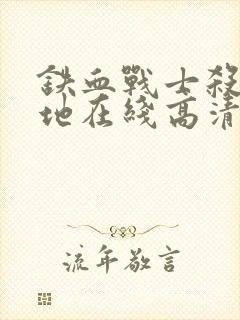 鉄血戰士殺
地在綫高清
流年敬言